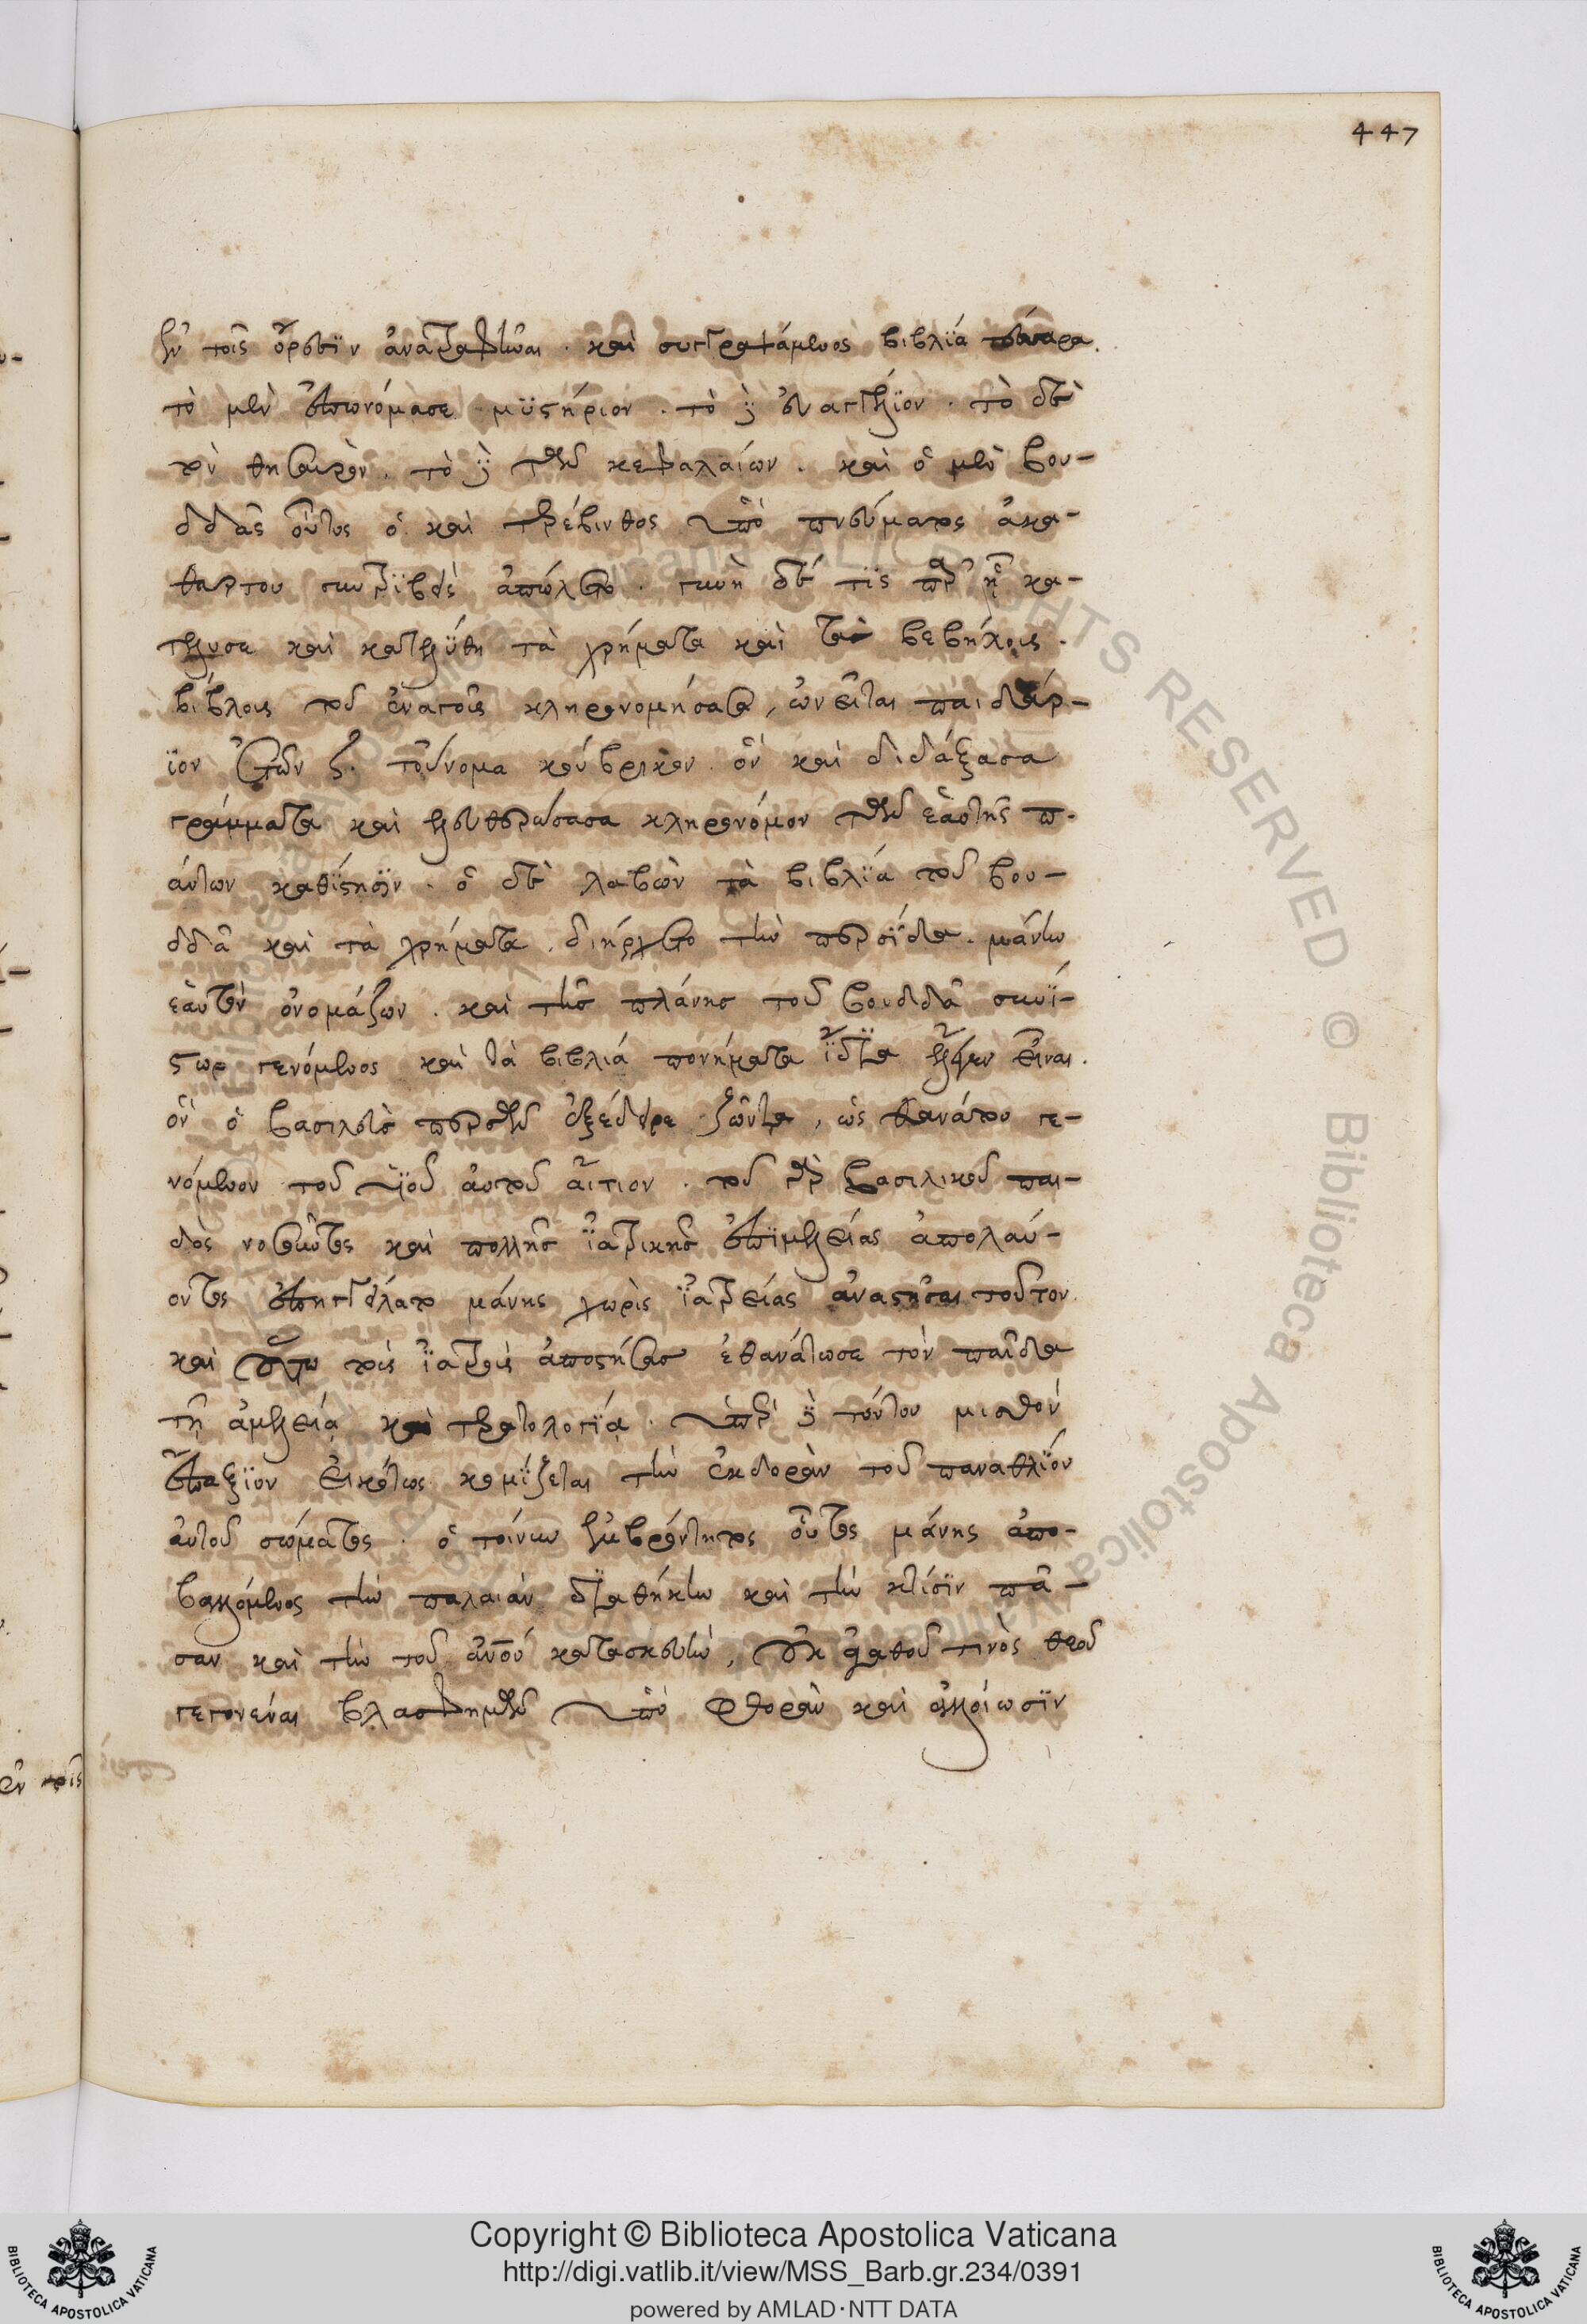 447
ἐν τοῖς ὄρεσιν ἀνατραφῆναι. καὶ συγγραψάμενος βιβλία τέσσαρα.
τὸ μὲν ἐπωνόμασε μυστήριον. τὸ δὲ εὐαγγέλιον. τὸ δὲ
τὸν θησαυρὸν. τὸ δὲ τῶν κεφαλαίων. καὶ ὁ μὲν βου-
δδᾶς οὗτος ὁ καὶ τερέβινθος ὑπὸ πνεύματος ἀκα-
θάρτου συντριβεὶς ἀπώλετο. γυνὴ δέ τις παρ' ᾗ κα-
τέλυσε καὶ κατελύθη τὰ χρήματα καὶ τὰς βεβήλους
βίβλους τοῦ ἐναγοῦς κληρονομήσασα, ὠνεῖται παιδάρ-
ιον ἐτῶν ζ. τοὔνομα κούβρικον. ὃν καὶ διδάξασα
γράμματα καὶ ἐλευθερώσασα κληρονόμον τῶν ἑαυτῆς π-
άντων καθίστησιν. ὁ δὲ λαβὼν τὰ βιβλία τοῦ βου-
δδᾶ καὶ τὰ χρήματα. διήρχετο τὴν περσίδα. μάνην
ἑαυτὸν ὀνομάζων. καὶ τῆς πλάνης τοῦ βουδδᾶ συνί-
στωρ γενόμενος καὶ τὰ βιβλιά πονήματα ἴδια ἔλεγεν εἶναι.
ὃν ὁ βασιλεὺς περσῶν ἐξέδειρε ζῶντα, ὡς θανάτου γε-
νόμενον τοῦ υἱοῦ αὐτοῦ αἴτιον. τοῦ γὰρ βασιλικοῦ παι-
δὸς νοσοῦντος καὶ πολλῆς ἰατρικῆς ἐπιμελείας ἀπολαύ-
οντος ἐπηγγείλατο μάνης χωρὶς ἰατρείας ἀναστῆσαι τοῦτον.
καὶ οὕτω τοὺς ἰατροὺς ἀποστήσας ἐθανάτωσε τὸν παῖδα
τῇ ἀμελείᾳ καὶ τερατολογίᾳ. ὑπὲρ δὲ τούτου μισθὸν
ἐπάξιον εἰκότως κομίζεται τὴν ἐκδορὰν τοῦ παναθλίου
αὐτοῦ σώματος. ὁ τοίνυν ἐμβρόντητος οὗτος μάνης ἀπο-
βαλλόμενος τὴν παλαιὰν διαθήκην καὶ τὴν κτίσιν πᾶ-
σαν καὶ τὴν τοῦ ἀνου κατασκευὴν, οὐκ ἀγαθοῦ τινὸς θεοῦ
γεγονέναι βλασφημῶν ὑπὸ φθορὰν καὶ ἀλλοίωσιν
Copyright © Biblioteca Apostolica Vaticana
http://digi.vatlib.it/view/MSS_Barb.gr.234/0391
powered by AMLAD·NTT DATA